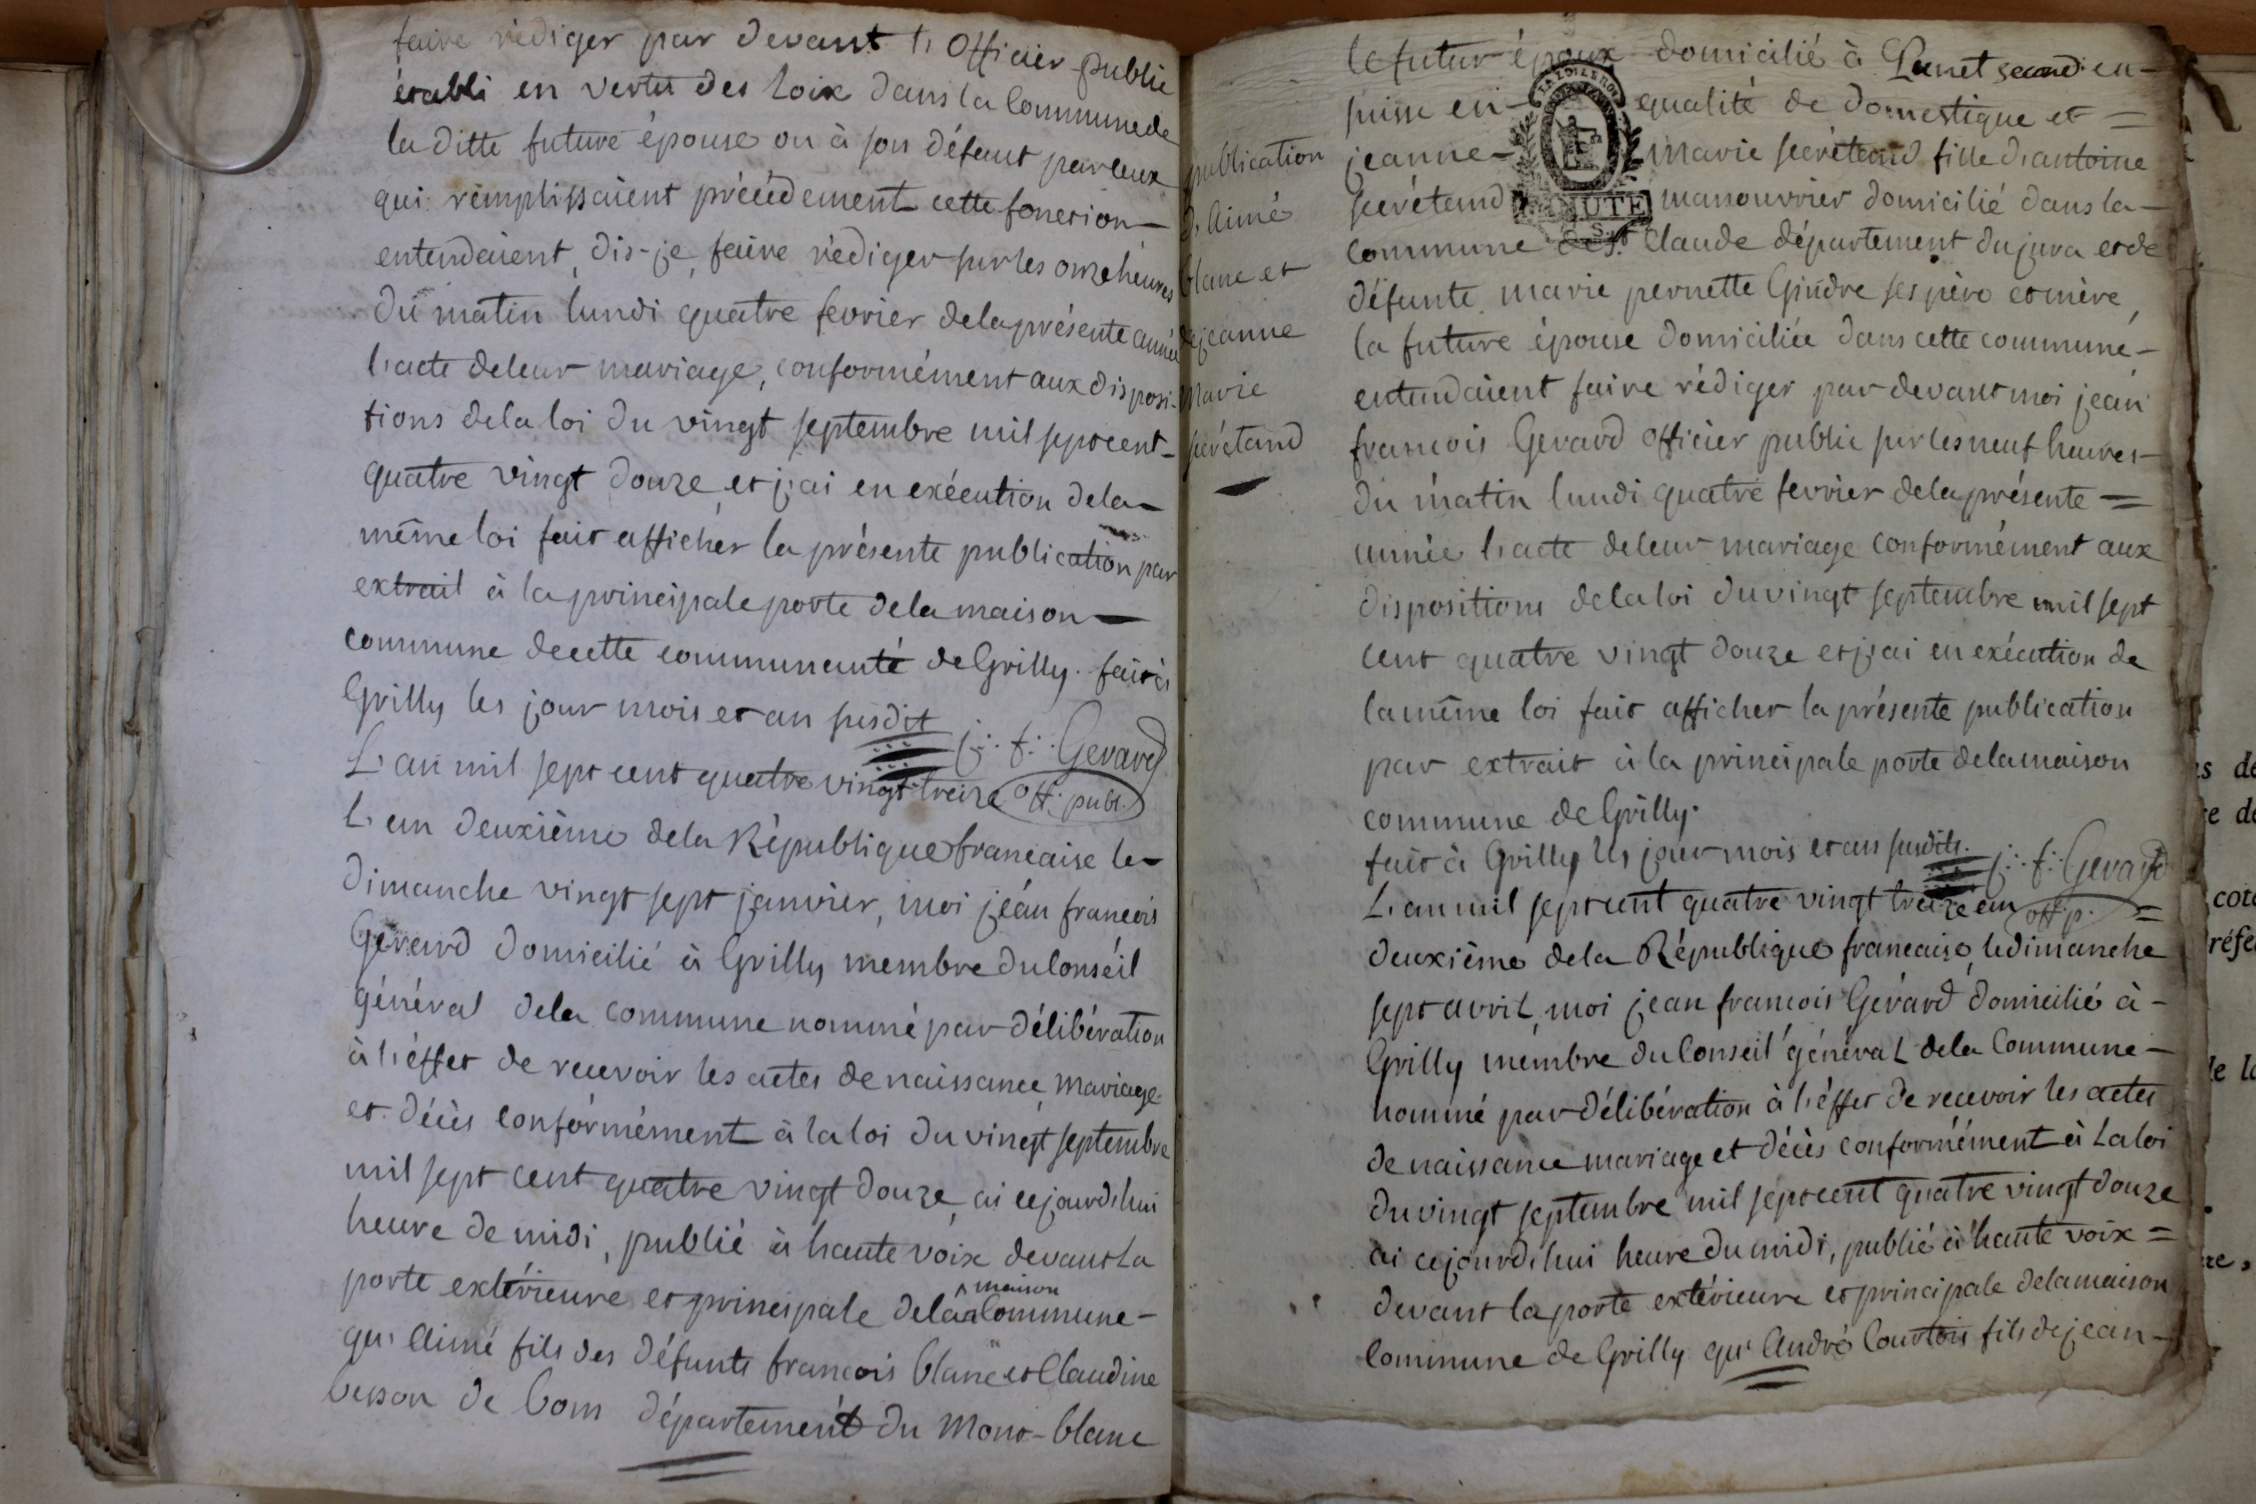 faire rédiger par devant l'Officier public
établi en vertu des Loix dans la Commune de
la ditte future épouse ou à son défaut par ceux
qui remplissaient précédement cette fonction
entendaient, dis-je, faire rédiger sur les onze heures
du matin lundi quatre fevrier de la présente année
l'acte de leur mariage, conformément aux disposi-
tions de la loi du vingt septembre mil sept cent
quatre vingt douze et j'ai en exécution de la
même loi fait afficher la présente publication par
extrait à la principale porte de la maison
commune de cette communauté de Grilly. fait à
Grilly les jour mois et an susdit
j: f: Gerard
off: publ.
L'an mil sept cent quatre vingt treize
L'an deuxième de la République francaise le
dimanche vingt sept janvier, moi jéan francois
Gerard domicilié à Grilly membre du Conséil
général de la commune nommé par délibération
à l'éffet de recevoir les actes de naissance mariage
et décès conformément à la loi du vingt septembre
mil sept cent quatre vingt douze, ai cejourd'hui
heure de midi, publié à haute voix devant la
porte extérieure et principale de la maison Commune
qu'Aimé fils des défunts francois blanc et Claudine
besson de bons département du Mont-blanc
publication
d'Aimé
blanc et
de jeanne
Marie
secrétand
le futur époux domicilié à second en
suisse en qualité de domestique et
jeanne Marie secrétand fille d'antoine
secrétand manouvrier domicilié dans la
commune de St. Claude département du jura et de
défunte marie pernette Gindre ses père et mère,
la future épouse domiciliée dans cette commune
entendaient faire rédiger par devant moi jean
francois Gerard Officier public sur les neuf heures
du matin lundi quatre fevrier de la présente =
année l'acte de leur mariage conformément aux
dispositions de la loi du vingt septembre mil sept
cent quatre vingt douze et j'ai en exécution de
la même loi fait afficher la présente publication
par extrait à la principale porte de la maison
commune de Grilly.
fait à Grilly les jour mois et an susdits.
j: f: Gerard
off: p.
L'an mil sept cent quatre vingt treize an =
deuxième de la République francaise, le dimanche
sept avril, moi jean francois Gerard domicilié à -
Grilly membre du Conseil général de la Commune -
nommé par délibération à l'éffet de recevoir les actes
de naissance mariage et décès conformément à la loi
du vingt septembre mil sept cent quatre vingt douze
ai cejourd'hui heure du midi, publié à haute voix =
devant la porte extérieure et principale de la maison
Commune de Grilly qu'André Courtois fils de jean -